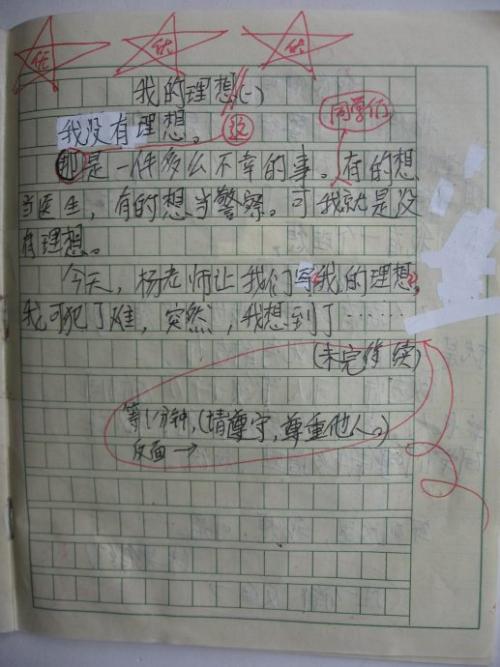 优 优 优
我的理想(一)
我没有理想。 说
同学们
那是一件多么不幸的事。有的想
当医生，有的想当警察。可我就是没
有理想。
今天，杨老师让我们写我的理想，
我可犯了难，突然，我想到了……
(未完待续)
等1分钟，(请遵守，尊重他人。)
反面→